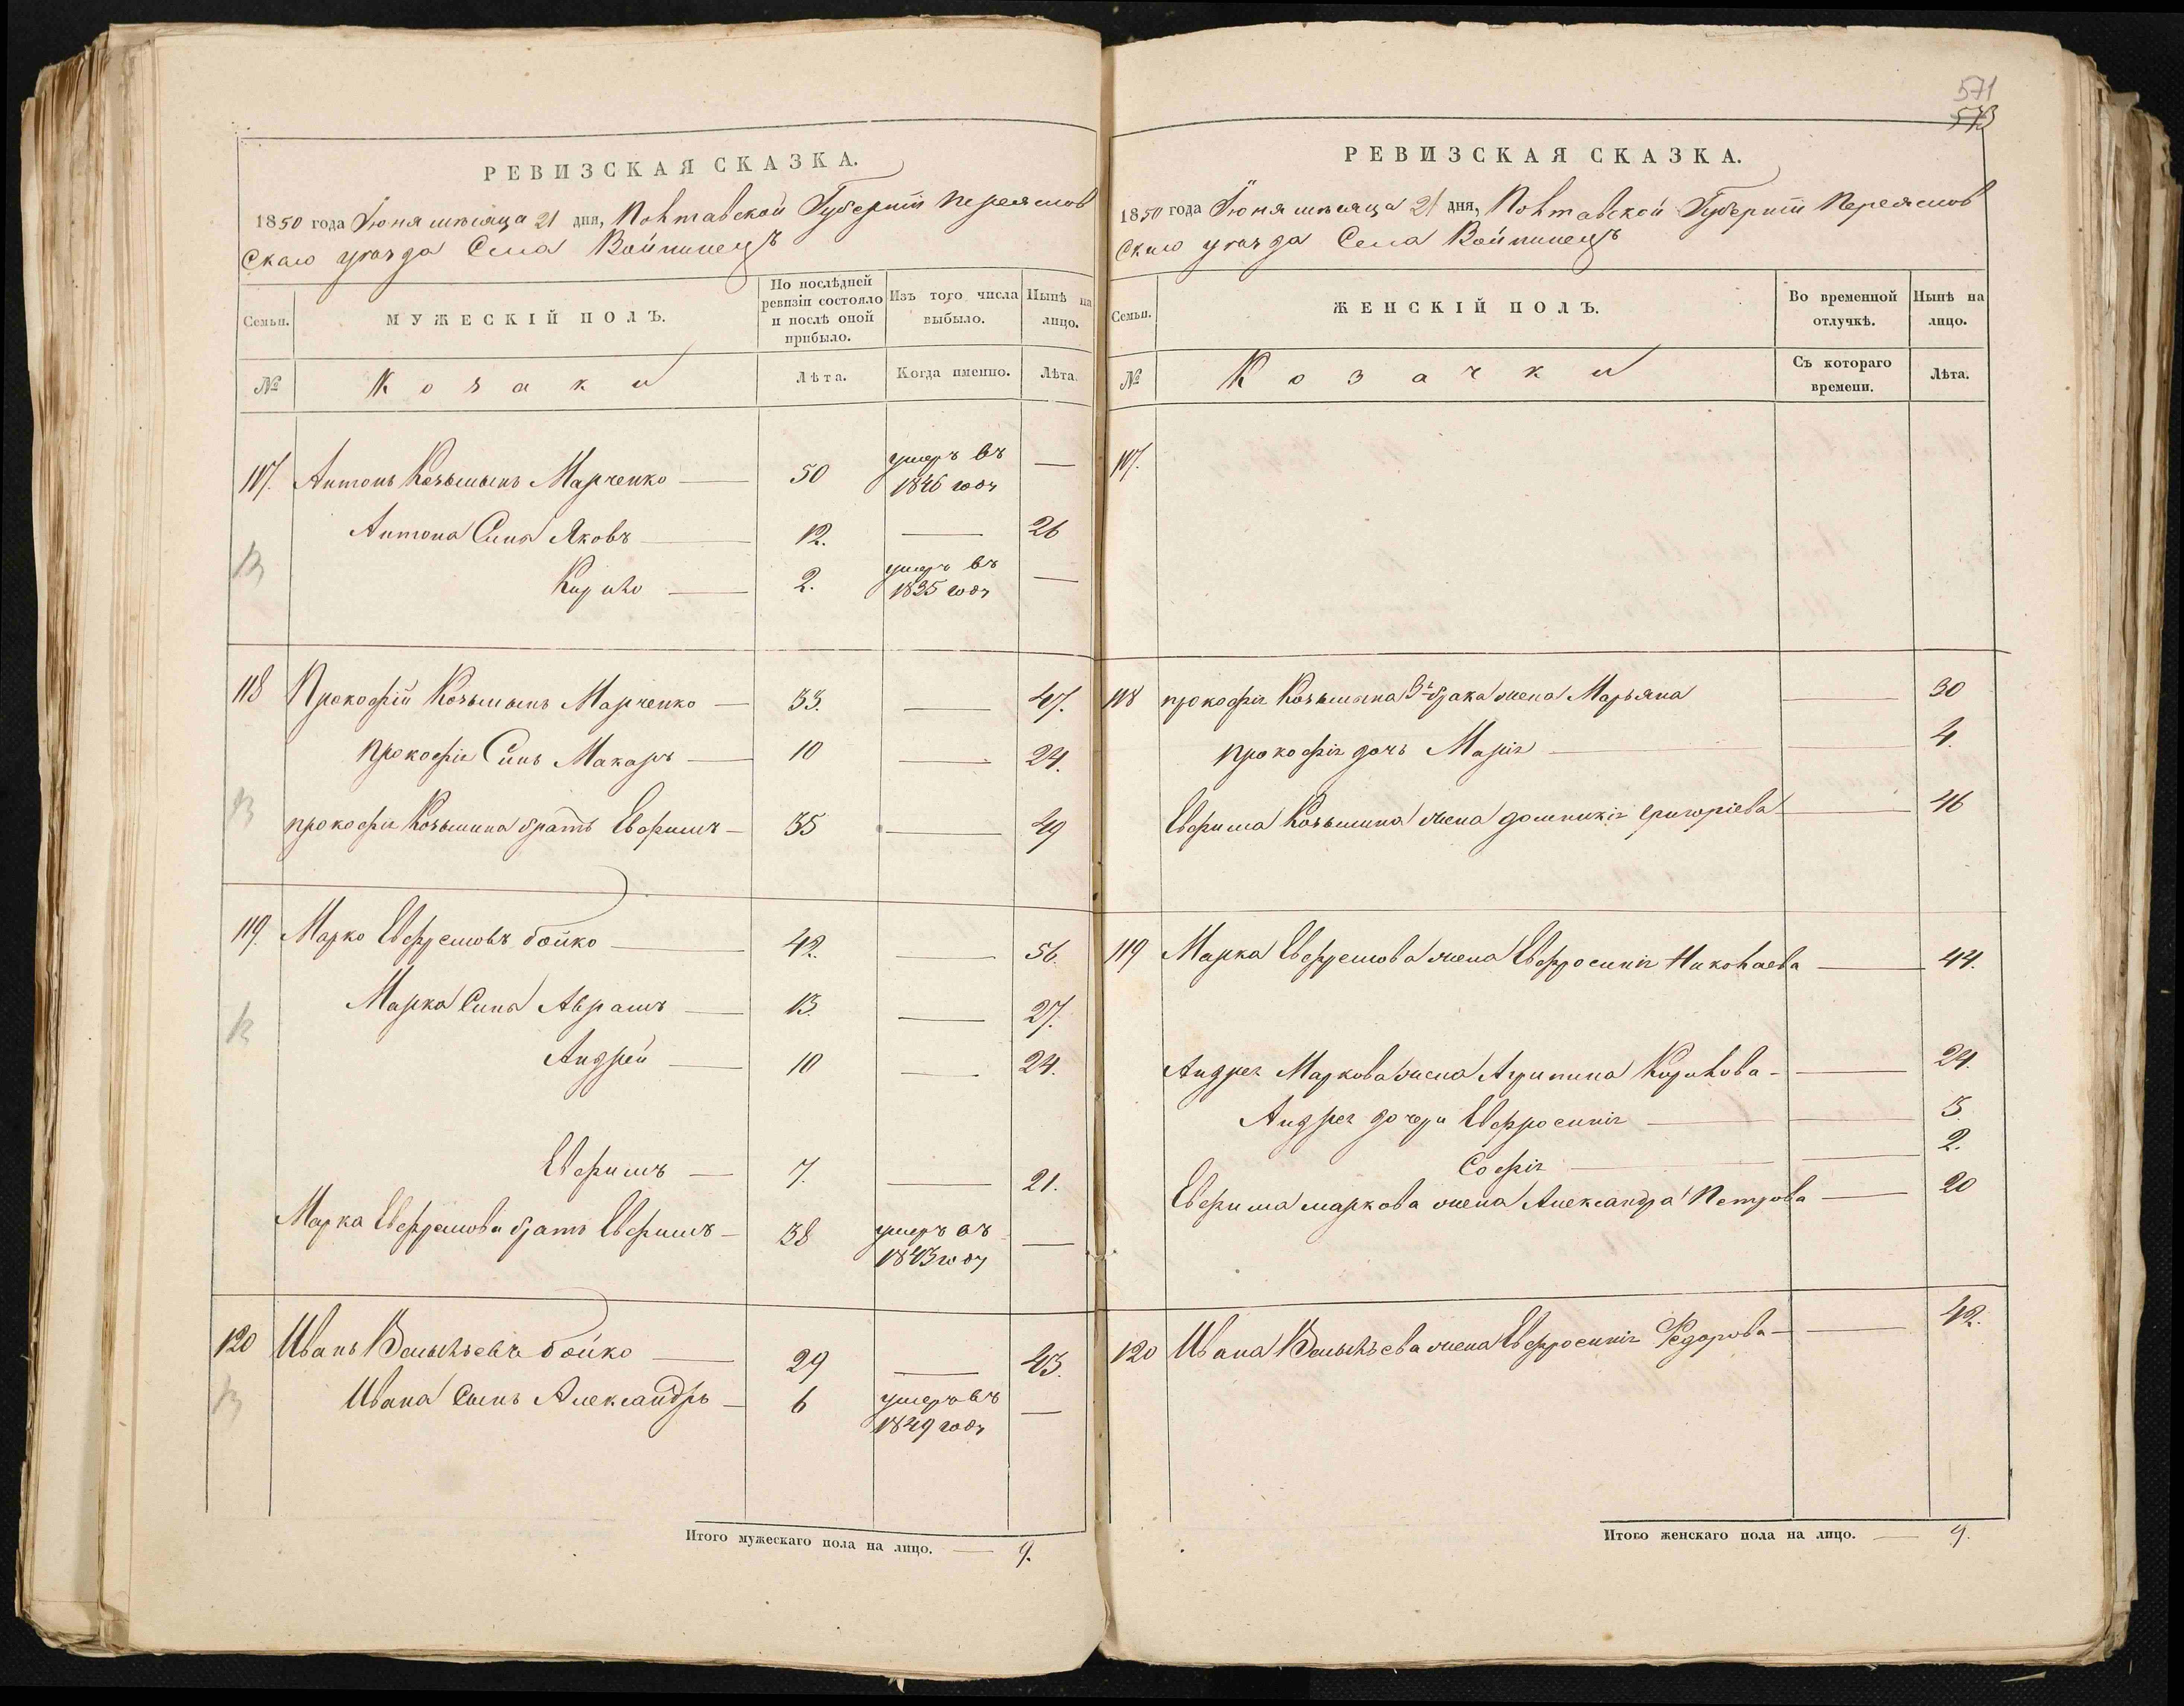 РЕВИЗСКАЯ СКАЗКА.
1850 года Іюня мѣсяца 21 дня, Полтавской Губерніи Переяслов
скаго уѣзда Села Войтинецъ
Семьи.
МУЖЕСКІЙ ПОЛЪ.
По послѣдней ревизіи состояло и послѣ оной прибыло.
Изъ того числа выбыло.
Нынѣ на лицо.
№
Козаки
Лѣта.
Когда именно.
Лѣта.
117. Антонъ Козьминъ Марченко — 50 умеръ въ 1846 годѣ —
Антона Сынъ Яковъ — 12. — 26
Кирило — 2. умеръ въ 1835 годѣ —
118 Прокофій Козьминъ Марченко — 33. — 47.
Прокофія Сынъ Макаръ — 10 — 24.
прокофія Козьмина братъ Евфимъ — 35 — 49
119. Марко Евфремовъ бойко — 42. — 56.
Марка Сынъ Аврамъ — 13. — 27.
Андрей — 10 — 24.
Евфимъ — 7. — 21.
Марка Евфремова братъ Евфимъ — 38 умеръ въ 1843 годѣ —
120 Иванъ Васильевъ бойко — 29 — 43.
Ивана Сынъ Александръ — 6 умеръ въ 1849 годѣ —
Итого мужескаго пола на лицо. — 9.
571
573
РЕВИЗСКАЯ СКАЗКА.
1850 года Іюня мѣсяца 21 дня, Полтавской Губерніи Переяслов
скаго уѣзда Села Войтинецъ
Семьи.
ЖЕНСКІЙ ПОЛЪ.
Во временной отлучкѣ.
Нынѣ на лицо.
№
Козачки
Съ котораго времени.
Лѣта.
117.
118 прокофія Козьмина 3го брака жена Марьяна — 30
Прокофія дочь Марія — 4.
Евфима Козьмина жена доминикія григоріева — 46
119 Марка Евфремова жена Евфросинія Николаева — 44.
Андрея Маркова жена Агрипина Кирилова — 24.
Андрея дочери Евфросинія — 3.
Софія — 2.
Евфима маркова жена Александра Петрова — 20
120 Ивана Васильева жена Евфросинія Федорова — 42.
Итого женскаго пола на лицо. — 9.